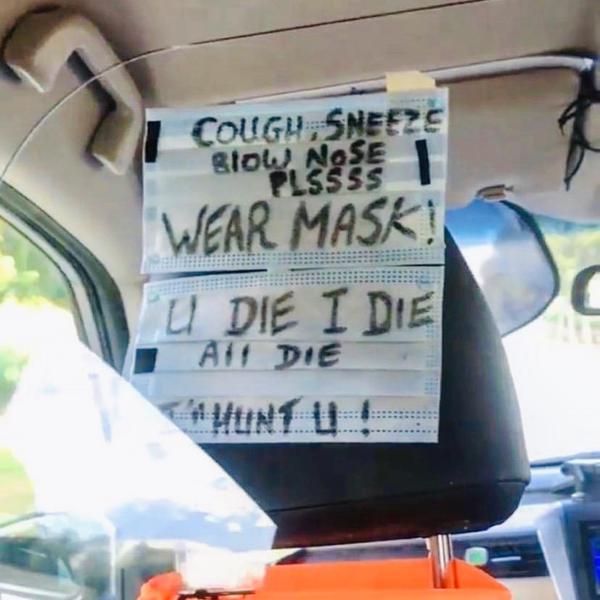 COUGH, SNEEZE
BlOW NOSE
PLSSSS
WEAR MASK!
U DIE I DIE
All DIE
I'll HUNT U !